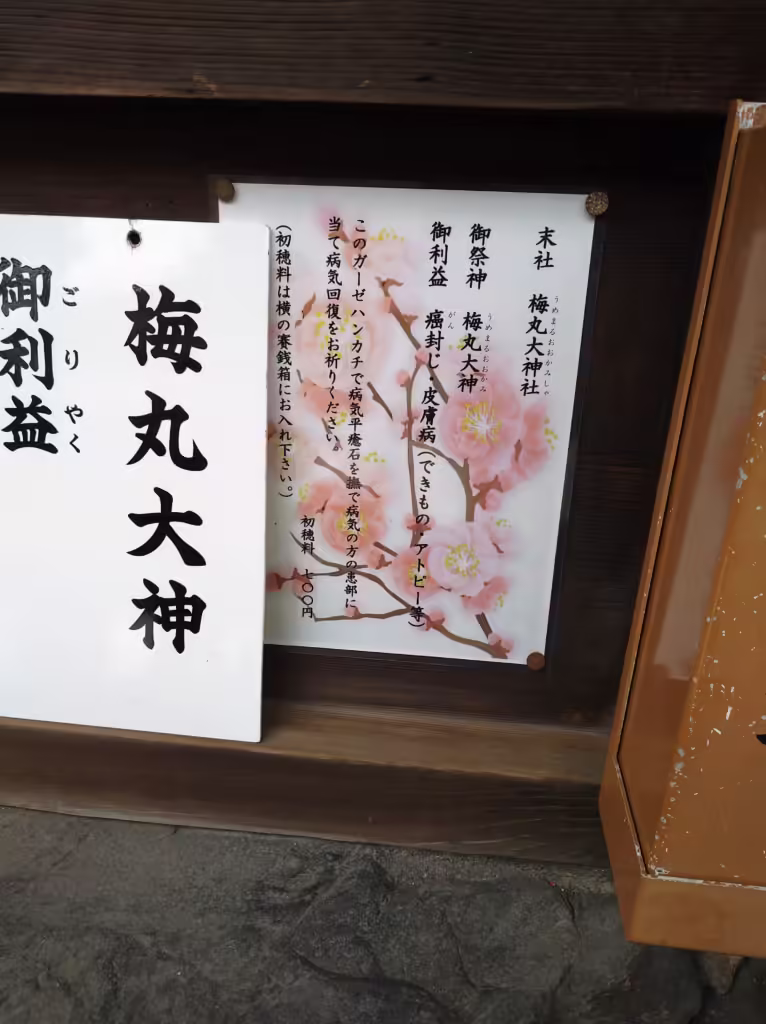 末社　梅丸大神社
うめまるおおかみしゃ
御祭神　梅丸大神
うめまるおおかみ
御利益　癌封じ・皮膚病（できもの・アトピー等）
がん
このガーゼハンカチで病気平癒石を撫で病気の方の患部に
当て病気回復をお祈りください。
初穂料　七〇〇円
（初穂料は横の賽銭箱にお入れ下さい。）
梅丸大神
御利益
ごりやく